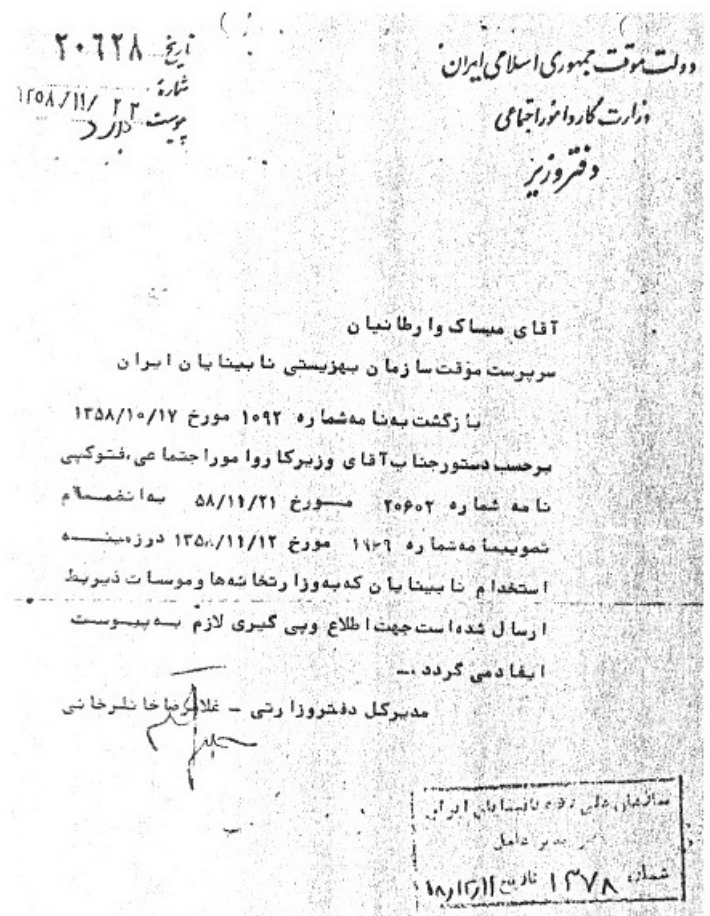 دولت موقت جمهوری اسلامی ایران
وزارت کار و امور اجتماعی
دفتر وزیر
تاریخ ۲۰۶۲۸
شماره ۱۳۵۸/۱۱/۲۲
پیوست دارد
آقای میساک وارطانیان
سرپرست موقت سازمان بهزیستی نابینایان ایران
بازگشت به نامه شماره ۱۰۹۲ مورخ ۱۳۵۸/۱۰/۱۷
برحسب دستور جناب آقای وزیر کار و امور اجتماعی، فتوکپی
نامه شماره ۲۰۶۰۲ مورخ ۵۸/۱۱/۲۱ به انضمام
تصویبنامه شماره مورخ ۱۳۵۸/۱۱/۱۲ در زمینه
استخدام نابینایان که به وزارتخانه‌ها و موسسات ذیربط
ارسال شده است جهت اطلاع و پی گیری لازم به پیوست
ایفاد می گردد.
مدیرکل دفتر وزارتی - غلامرضا خانلرخانی
سازمان ملی رفاه نابینایان ایران
مدیر عامل
شماره ۱۳۷۸ تاریخ